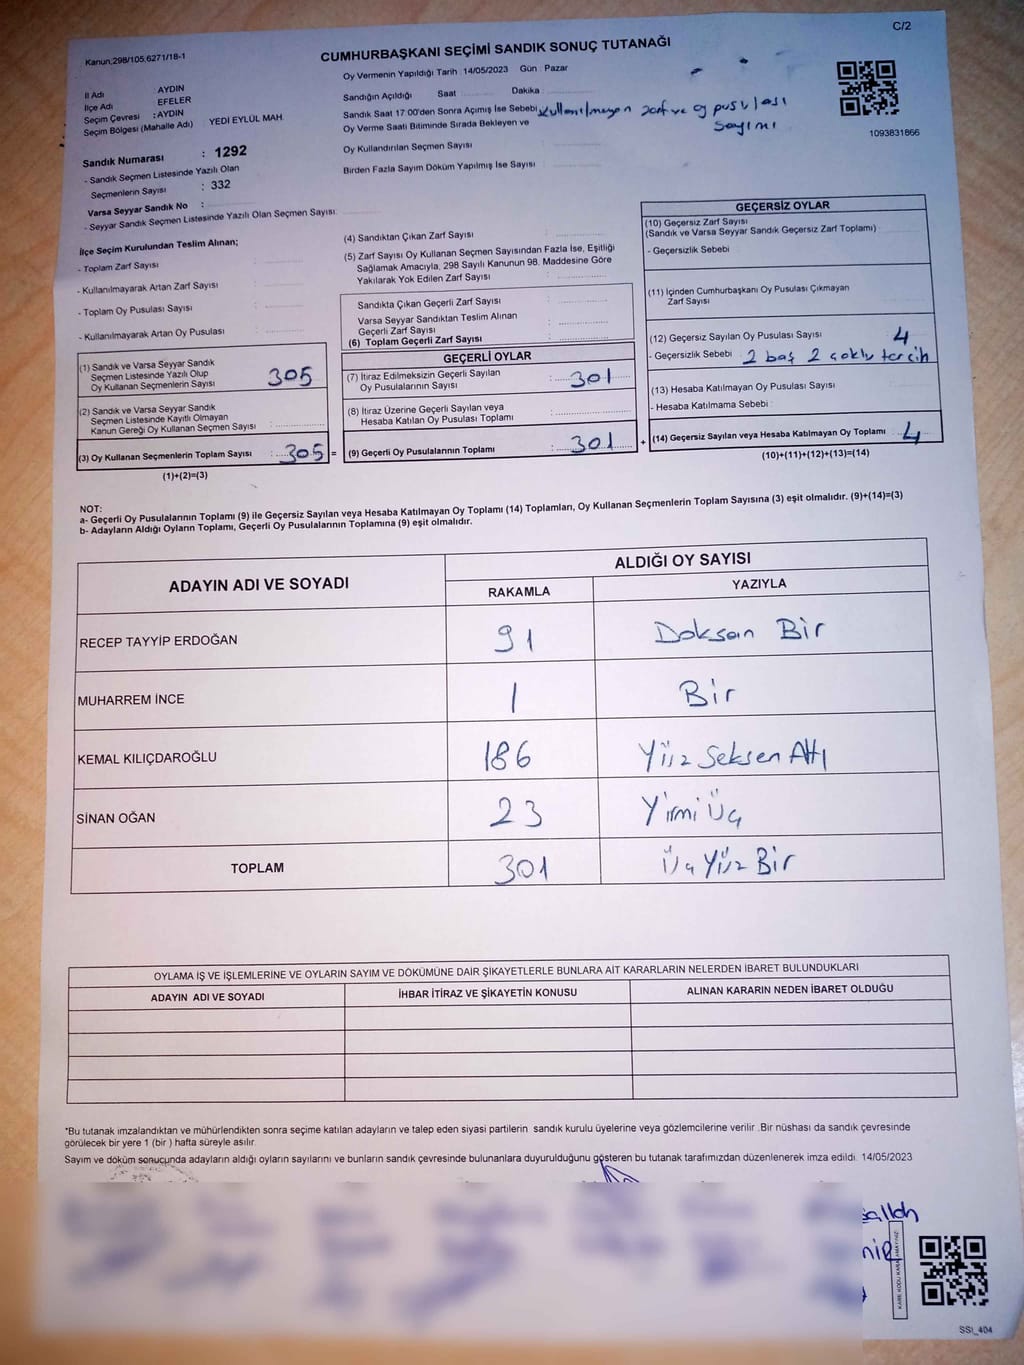 C/2
Kanun;298/105,6271/18-1
CUMHURBAŞKANI SEÇİMİ SANDIK SONUÇ TUTANAĞI
İl Adı AYDIN
İlçe Adı EFELER
Seçim Çevresi : AYDIN
Seçim Bölgesi (Mahalle Adı) YEDİ EYLÜL MAH.
Sandık Numarası : 1292
- Sandık Seçmen Listesinde Yazılı Olan
Seçmenlerin Sayısı : 332
Varsa Seyyar Sandık No :
- Seyyar Sandık Seçmen Listesinde Yazılı Olan Seçmen Sayısı:
Oy Vermenin Yapıldığı Tarih : 14/05/2023 Gün : Pazar
Sandığın Açıldığı Saat Dakika :
Sandık Saat 17:00'den Sonra Açımış İse Sebebi Kullanılmayan zarf ve oy pusulası
Oy Verme Saati Bitiminde Sırada Bekleyen ve sayımı
Oy Kullandırılan Seçmen Sayısı
Birden Fazla Sayım Döküm Yapılmış İse Sayısı :
1093831866
İlçe Seçim Kurulundan Teslim Alınan;
- Toplam Zarf Sayısı :
- Kullanılmayarak Artan Zarf Sayısı :
- Toplam Oy Pusulası Sayısı :
- Kullanılmayarak Artan Oy Pusulası :
(1) Sandık ve Varsa Seyyar Sandık
Seçmen Listesinde Yazılı Olup
Oy Kullanan Seçmenlerin Sayısı 305
(2) Sandık ve Varsa Seyyar Sandık
Seçmen Listesinde Kayıtlı Olmayan
Kanun Gereği Oy Kullanan Seçmen Sayısı :
(3) Oy Kullanan Seçmenlerin Toplam Sayısı : 305 =
(1)+(2)=(3)
(4) Sandıktan Çıkan Zarf Sayısı :
(5) Zarf Sayısı Oy Kullanan Seçmen Sayısından Fazla İse, Eşitliği
Sağlamak Amacıyla, 298 Sayılı Kanunun 98. Maddesine Göre
Yakılarak Yok Edilen Zarf Sayısı :
Sandıkta Çıkan Geçerli Zarf Sayısı :
Varsa Seyyar Sandıktan Teslim Alınan
Geçerli Zarf Sayısı :
(6) Toplam Geçerli Zarf Sayısı :
GEÇERLİ OYLAR
(7) İtiraz Edilmeksizin Geçerli Sayılan
Oy Pusulalarının Sayısı : 301
(8) İtiraz Üzerine Geçerli Sayılan veya
Hesaba Katılan Oy Pusulası Toplamı :
(9) Geçerli Oy Pusulalarının Toplamı : 301 +
GEÇERSİZ OYLAR
(10) Geçersiz Zarf Sayısı
(Sandık ve Varsa Seyyar Sandık Geçersiz Zarf Toplamı)
- Geçersizlik Sebebi :
(11) İçinden Cumhurbaşkanı Oy Pusulası Çıkmayan
Zarf Sayısı :
(12) Geçersiz Sayılan Oy Pusulası Sayısı : 4
- Geçersizlik Sebebi : 2 boş 2 çoklu tercih
(13) Hesaba Katılmayan Oy Pusulası Sayısı :
- Hesaba Katılmama Sebebi :
(14) Geçersiz Sayılan veya Hesaba Katılmayan Oy Toplamı : 4
(10)+(11)+(12)+(13)=(14)
NOT:
a- Geçerli Oy Pusulalarının Toplamı (9) ile Geçersiz Sayılan veya Hesaba Katılmayan Oy Toplamı (14) Toplamları, Oy Kullanan Seçmenlerin Toplam Sayısına (3) eşit olmalıdır. (9)+(14)=(3)
b- Adayların Aldığı Oyların Toplamı, Geçerli Oy Pusulalarının Toplamına (9) eşit olmalıdır.
ADAYIN ADI VE SOYADI ALDIĞI OY SAYISI
RAKAMLA YAZIYLA
RECEP TAYYİP ERDOĞAN 91 Doksan Bir
MUHARREM İNCE 1 Bir
KEMAL KILIÇDAROĞLU 186 Yüz Seksen Altı
SİNAN OĞAN 23 Yirmi Üç
TOPLAM 301 Üç Yüz Bir
OYLAMA İŞ VE İŞLEMLERİNE VE OYLARIN SAYIM VE DÖKÜMÜNE DAİR ŞİKAYETLERLE BUNLARA AİT KARARLARIN NELERDEN İBARET BULUNDUKLARI
ADAYIN ADI VE SOYADI İHBAR İTİRAZ VE ŞİKAYETİN KONUSU ALINAN KARARIN NEDEN İBARET OLDUĞU
*Bu tutanak imzalandıktan ve mühürlendikten sonra seçime katılan adayların ve talep eden siyasi partilerin sandık kurulu üyelerine veya gözlemcilerine verilir .Bir nüshası da sandık çevresinde
görülecek bir yere 1 (bir ) hafta süreyle asılır.
Sayım ve döküm sonucunda adayların aldığı oyların sayılarını ve bunların sandık çevresinde bulunanlara duyurulduğunu gösteren bu tutanak tarafımızdan düzenlenerek imza edildi. 14/05/2023
SSİ_404